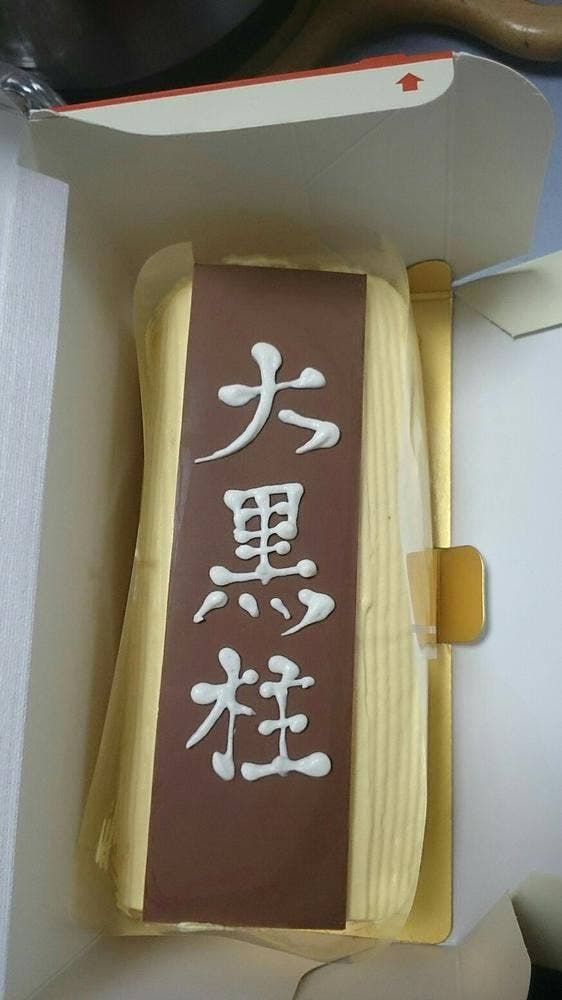 大黒柱